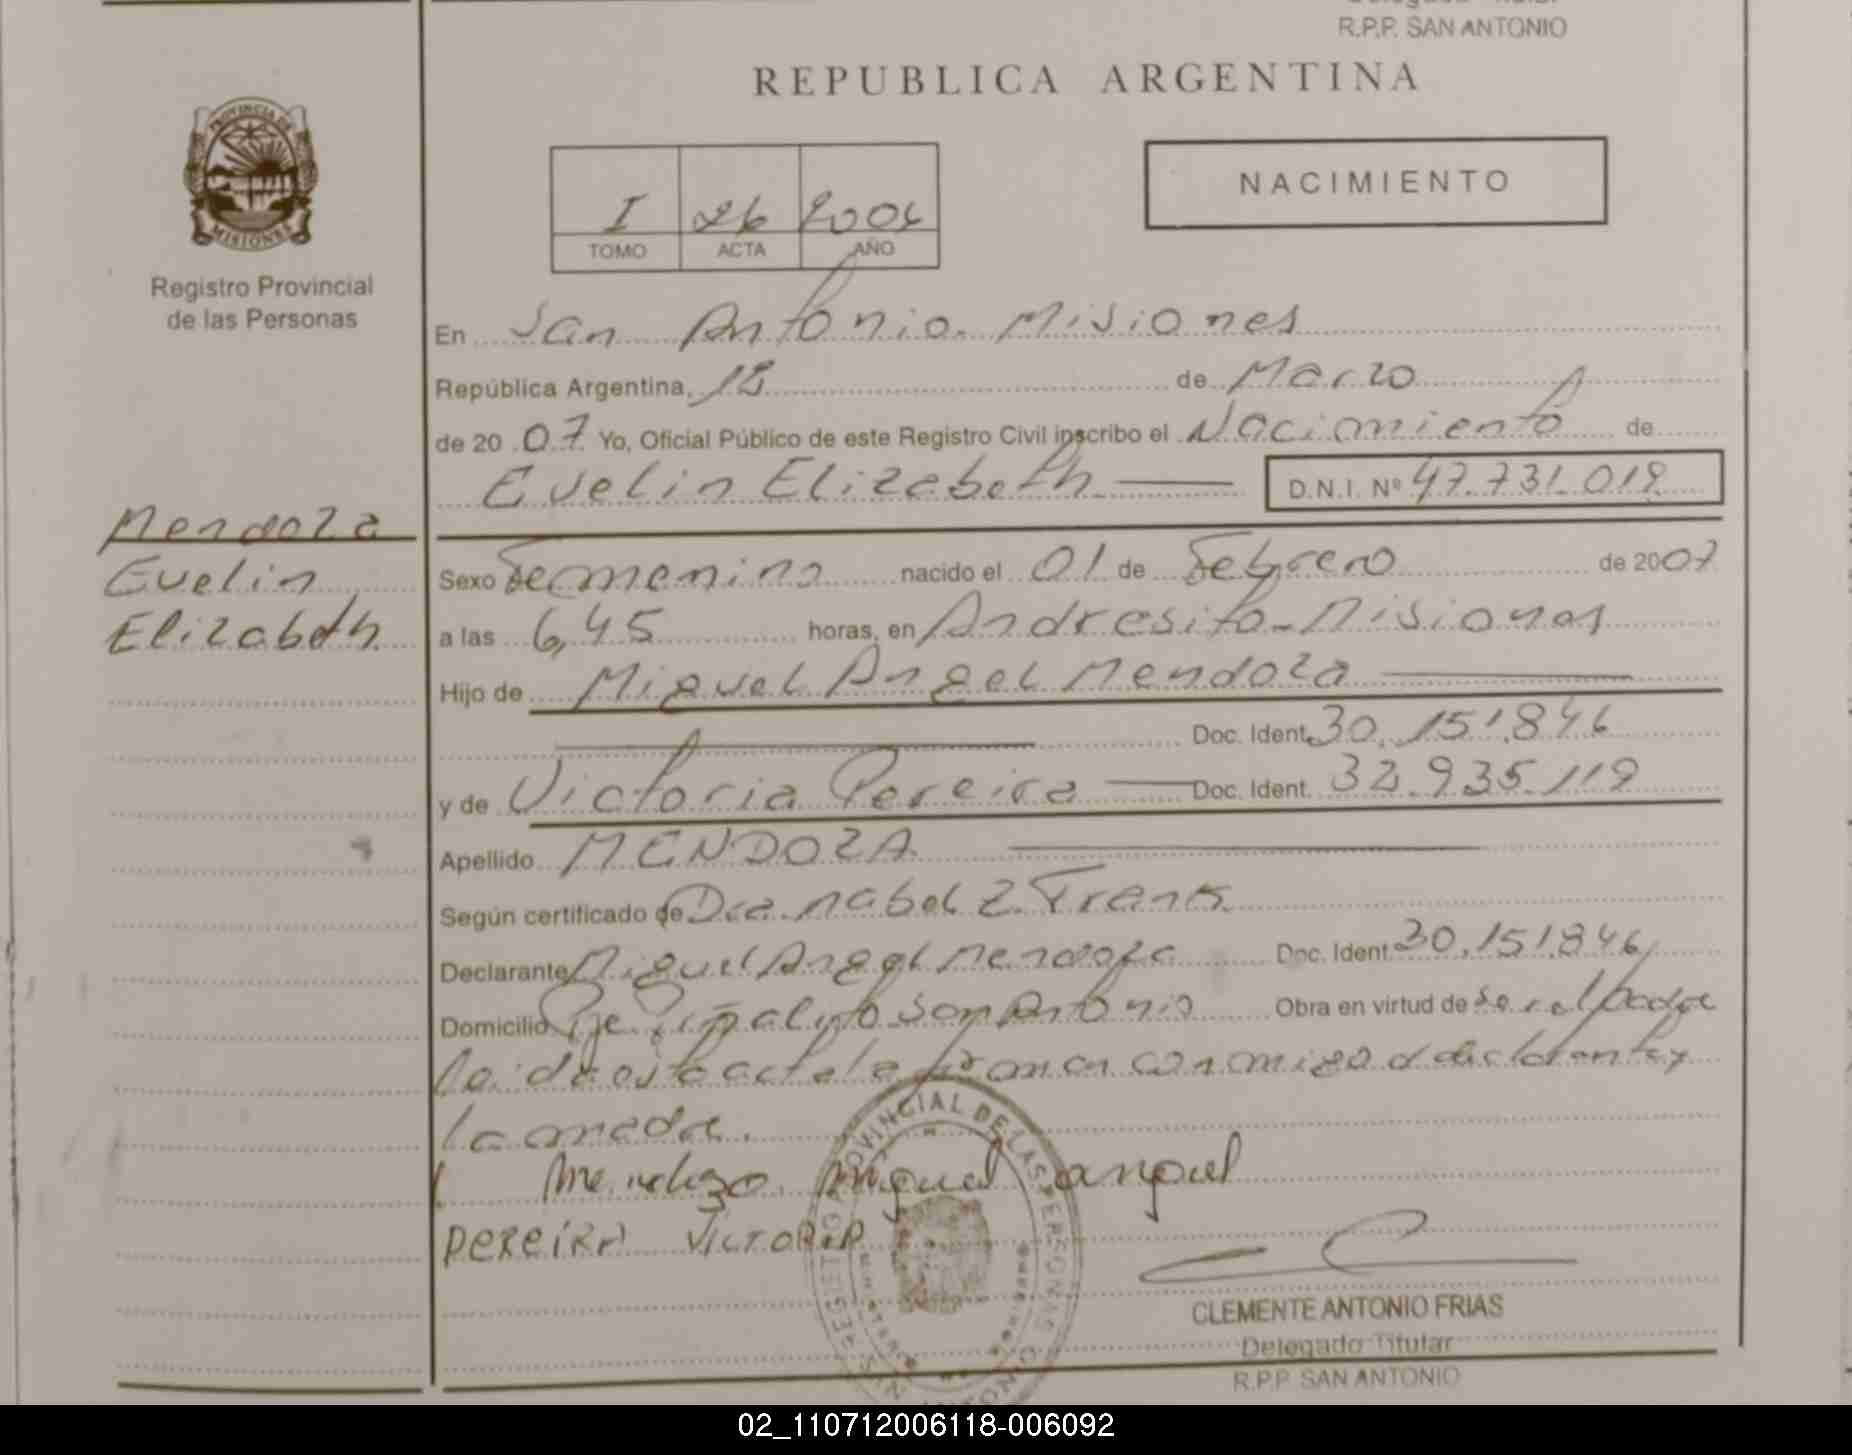 R.P.P. SAN ANTONIO
REPUBLICA ARGENTINA
PROVINCIA DE MISIONES
Registro Provincial
de las Personas
NACIMIENTO
I 26
TOMO ACTA AÑO
En San Antonio. Misiones
República Argentina, de Marzo
de 20 07 Yo, Oficial Público de este Registro Civil inscribo el Nacimiento de
Evelin Elizabeth D.N.I. Nº 47.731.019
Mendoza
Evelin
Elizabeth
Sexo Femenino nacido el 01 de Febrero de 2007
a las 6,45 horas, en Andresito - Misiones
Hijo de Miguel Angel Mendoza
Doc. Ident. 30.151.846
y de Victoria Pereira Doc. Ident. 32.935.119
Apellido MENDOZA
Según certificado de Dra. Mabel Z. Frank
Declarante Miguel Angel Mendoza Doc. Ident. 30.151.846
Domicilio San Antonio Obra en virtud de
Leida esta acta la firman conmigo declarante y
la madre.
Mendozo Miguel anguel
PEREIRA VICTORIA
REGISTRO PROVINCIAL DE LAS PERSONAS
CLEMENTE ANTONIO FRIAS
Delegado Titular
R.P.P. SAN ANTONIO
02_110712006118-006092